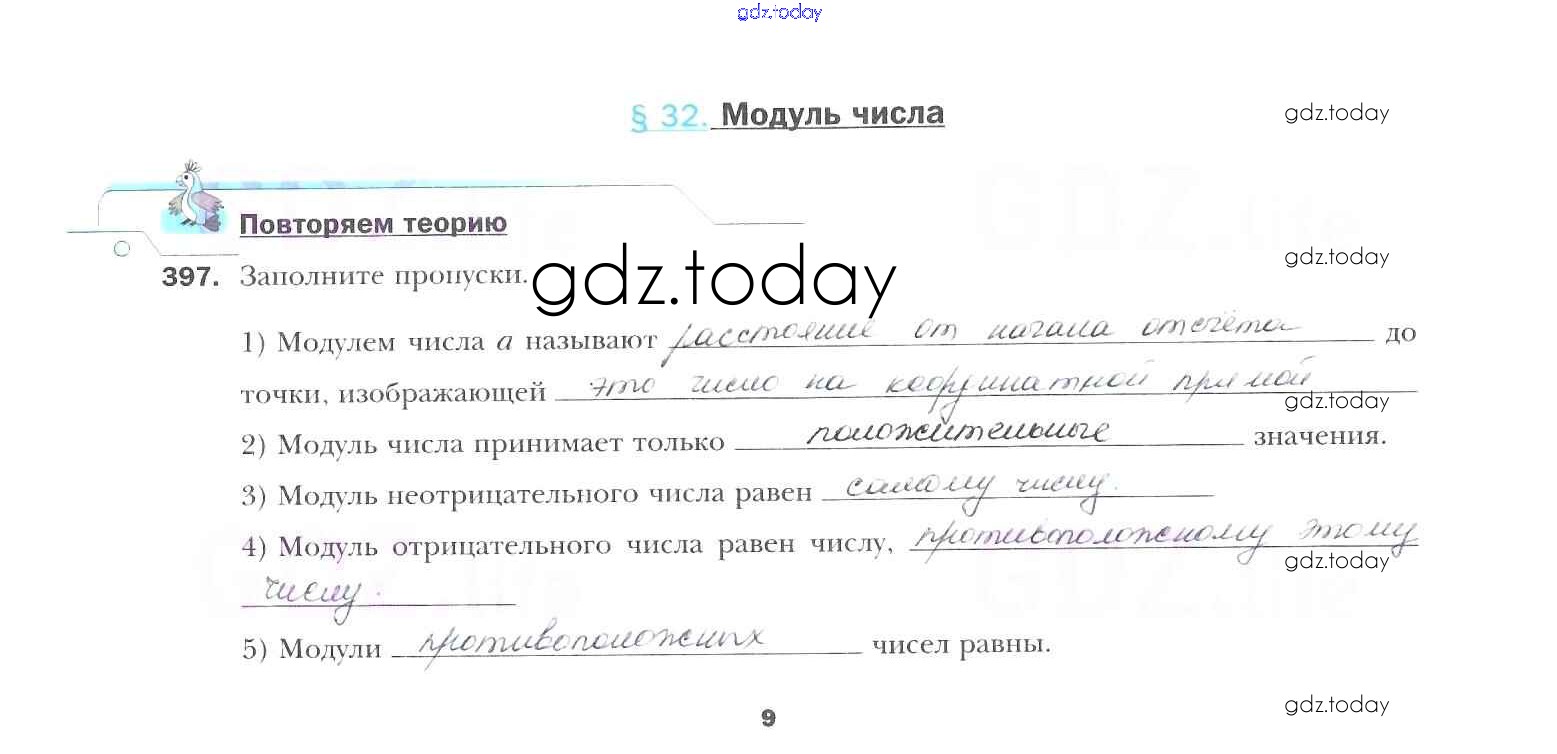 gdz.today
§ 32. Модуль числа
gdz.today
Повторяем теорию
gdz.today
397. Заполните пропуски.
gdz.today
1) Модулем числа a называют расстояние от начала отсчёта до
точки, изображающей это число на координатной прямой
gdz.today
2) Модуль числа принимает только положительные значения.
3) Модуль неотрицательного числа равен самому числу.
4) Модуль отрицательного числа равен числу, противоположному этому
gdz.today
числу.
5) Модули противоположных чисел равны.
gdz.today
9